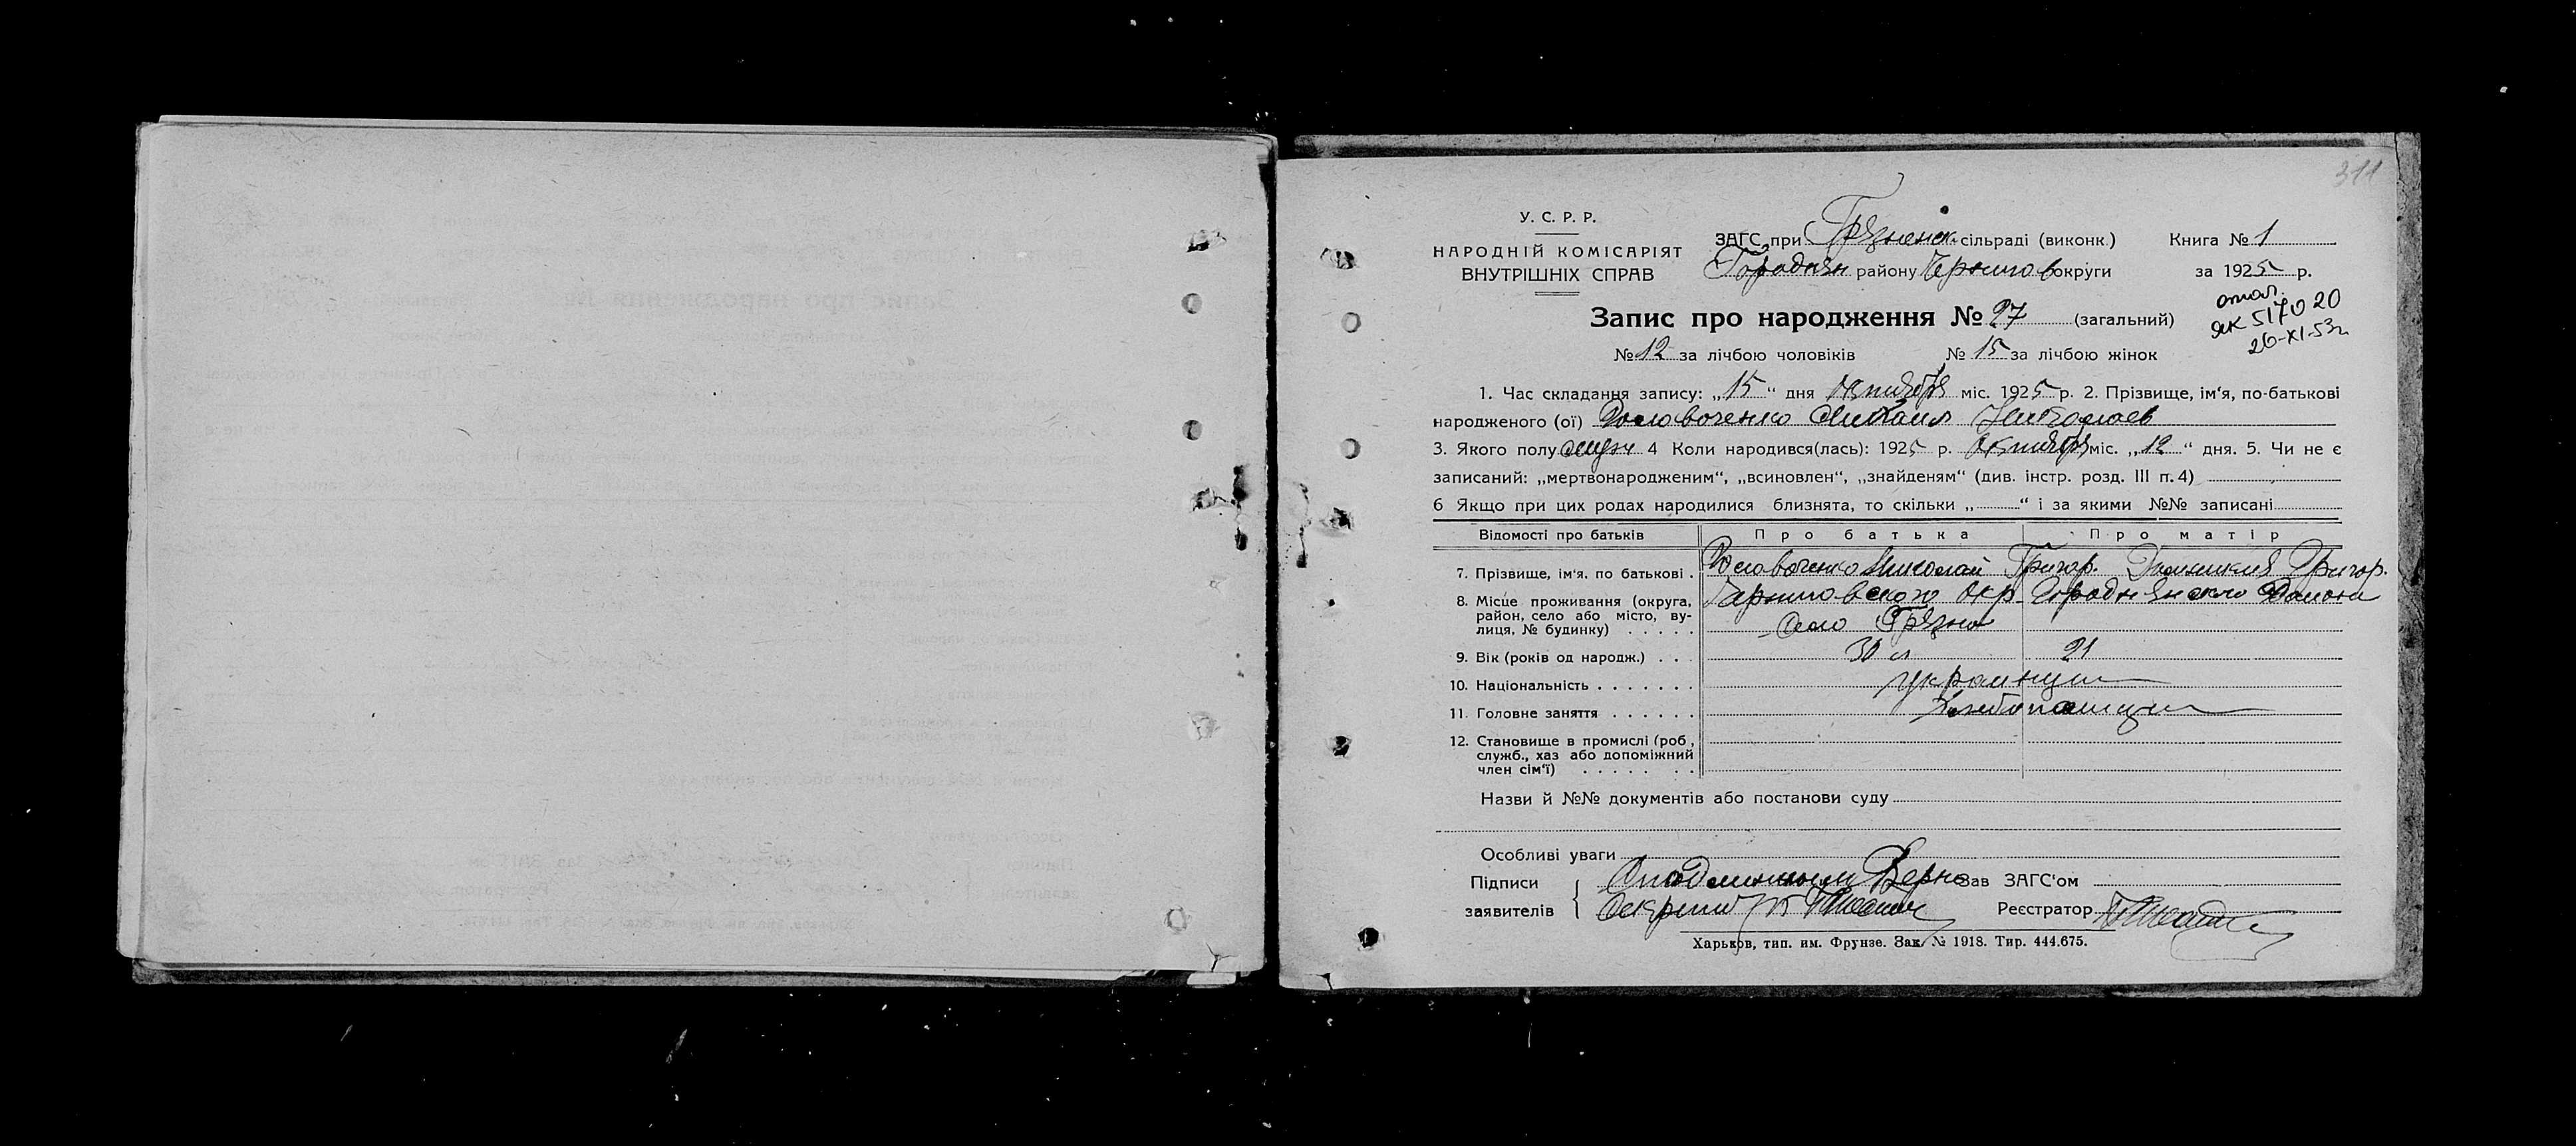 311
У. С. Р. Р.
НАРОДНІЙ КОМІСАРІЯТ
ВНУТРІШНІХ СПРАВ
ЗАГС при Грязненск. сільраді (виконк.) Книга № 1
Городнян району Чернигов округи за 1925 р.
Запис про народження № 27 (загальний)
№ 12 за лічбою чоловіків № 15 за лічбою жінок
ЯК 517020
26-XI-53г
1. Час складання запису: „15“ дня Октября міс. 1925 р. 2. Прізвище, ім‘я, по-батькові
народженого (ої) Михаил Николаев
3. Якого полу муж 4 Коли народився(лась): 1925 р. Октября міс. „12“ дня. 5. Чи не є
записаний: „мертвонародженим“, „всиновлен“, „знайденям“ (див. інстр. розд. III п. 4)
6 Якщо при цих родах народилися близнята, то скільки „ “ і за якими №№ записані
Відомості про батьків Про батька Про матір
7. Прізвище, ім‘я, по батькові . Николай Григор. Григор.
8. Місце проживання (округа, район, село або місто, вулиця, № будинку) . . . . . Черниговского Окр. Городнянского Района
Село Грязна
9. Вік (років од народж.) . . . 30 л 21
10. Національність . . . . . . . украинцы
11. Головне заняття . . . . . . Хлебопашцы
12. Становище в промислі (роб., служб., хаз або допоміжний член сім‘ї) . . . . . . .
Назви й №№ документів або постанови суду
Особливі уваги
Підписи С подлинным Верно Зав ЗАГС‘ом
заявителів Секретарь Реєстратор
Харьков, тип. им. Фрунзе. Зак. № 1918. Тир. 444.675.